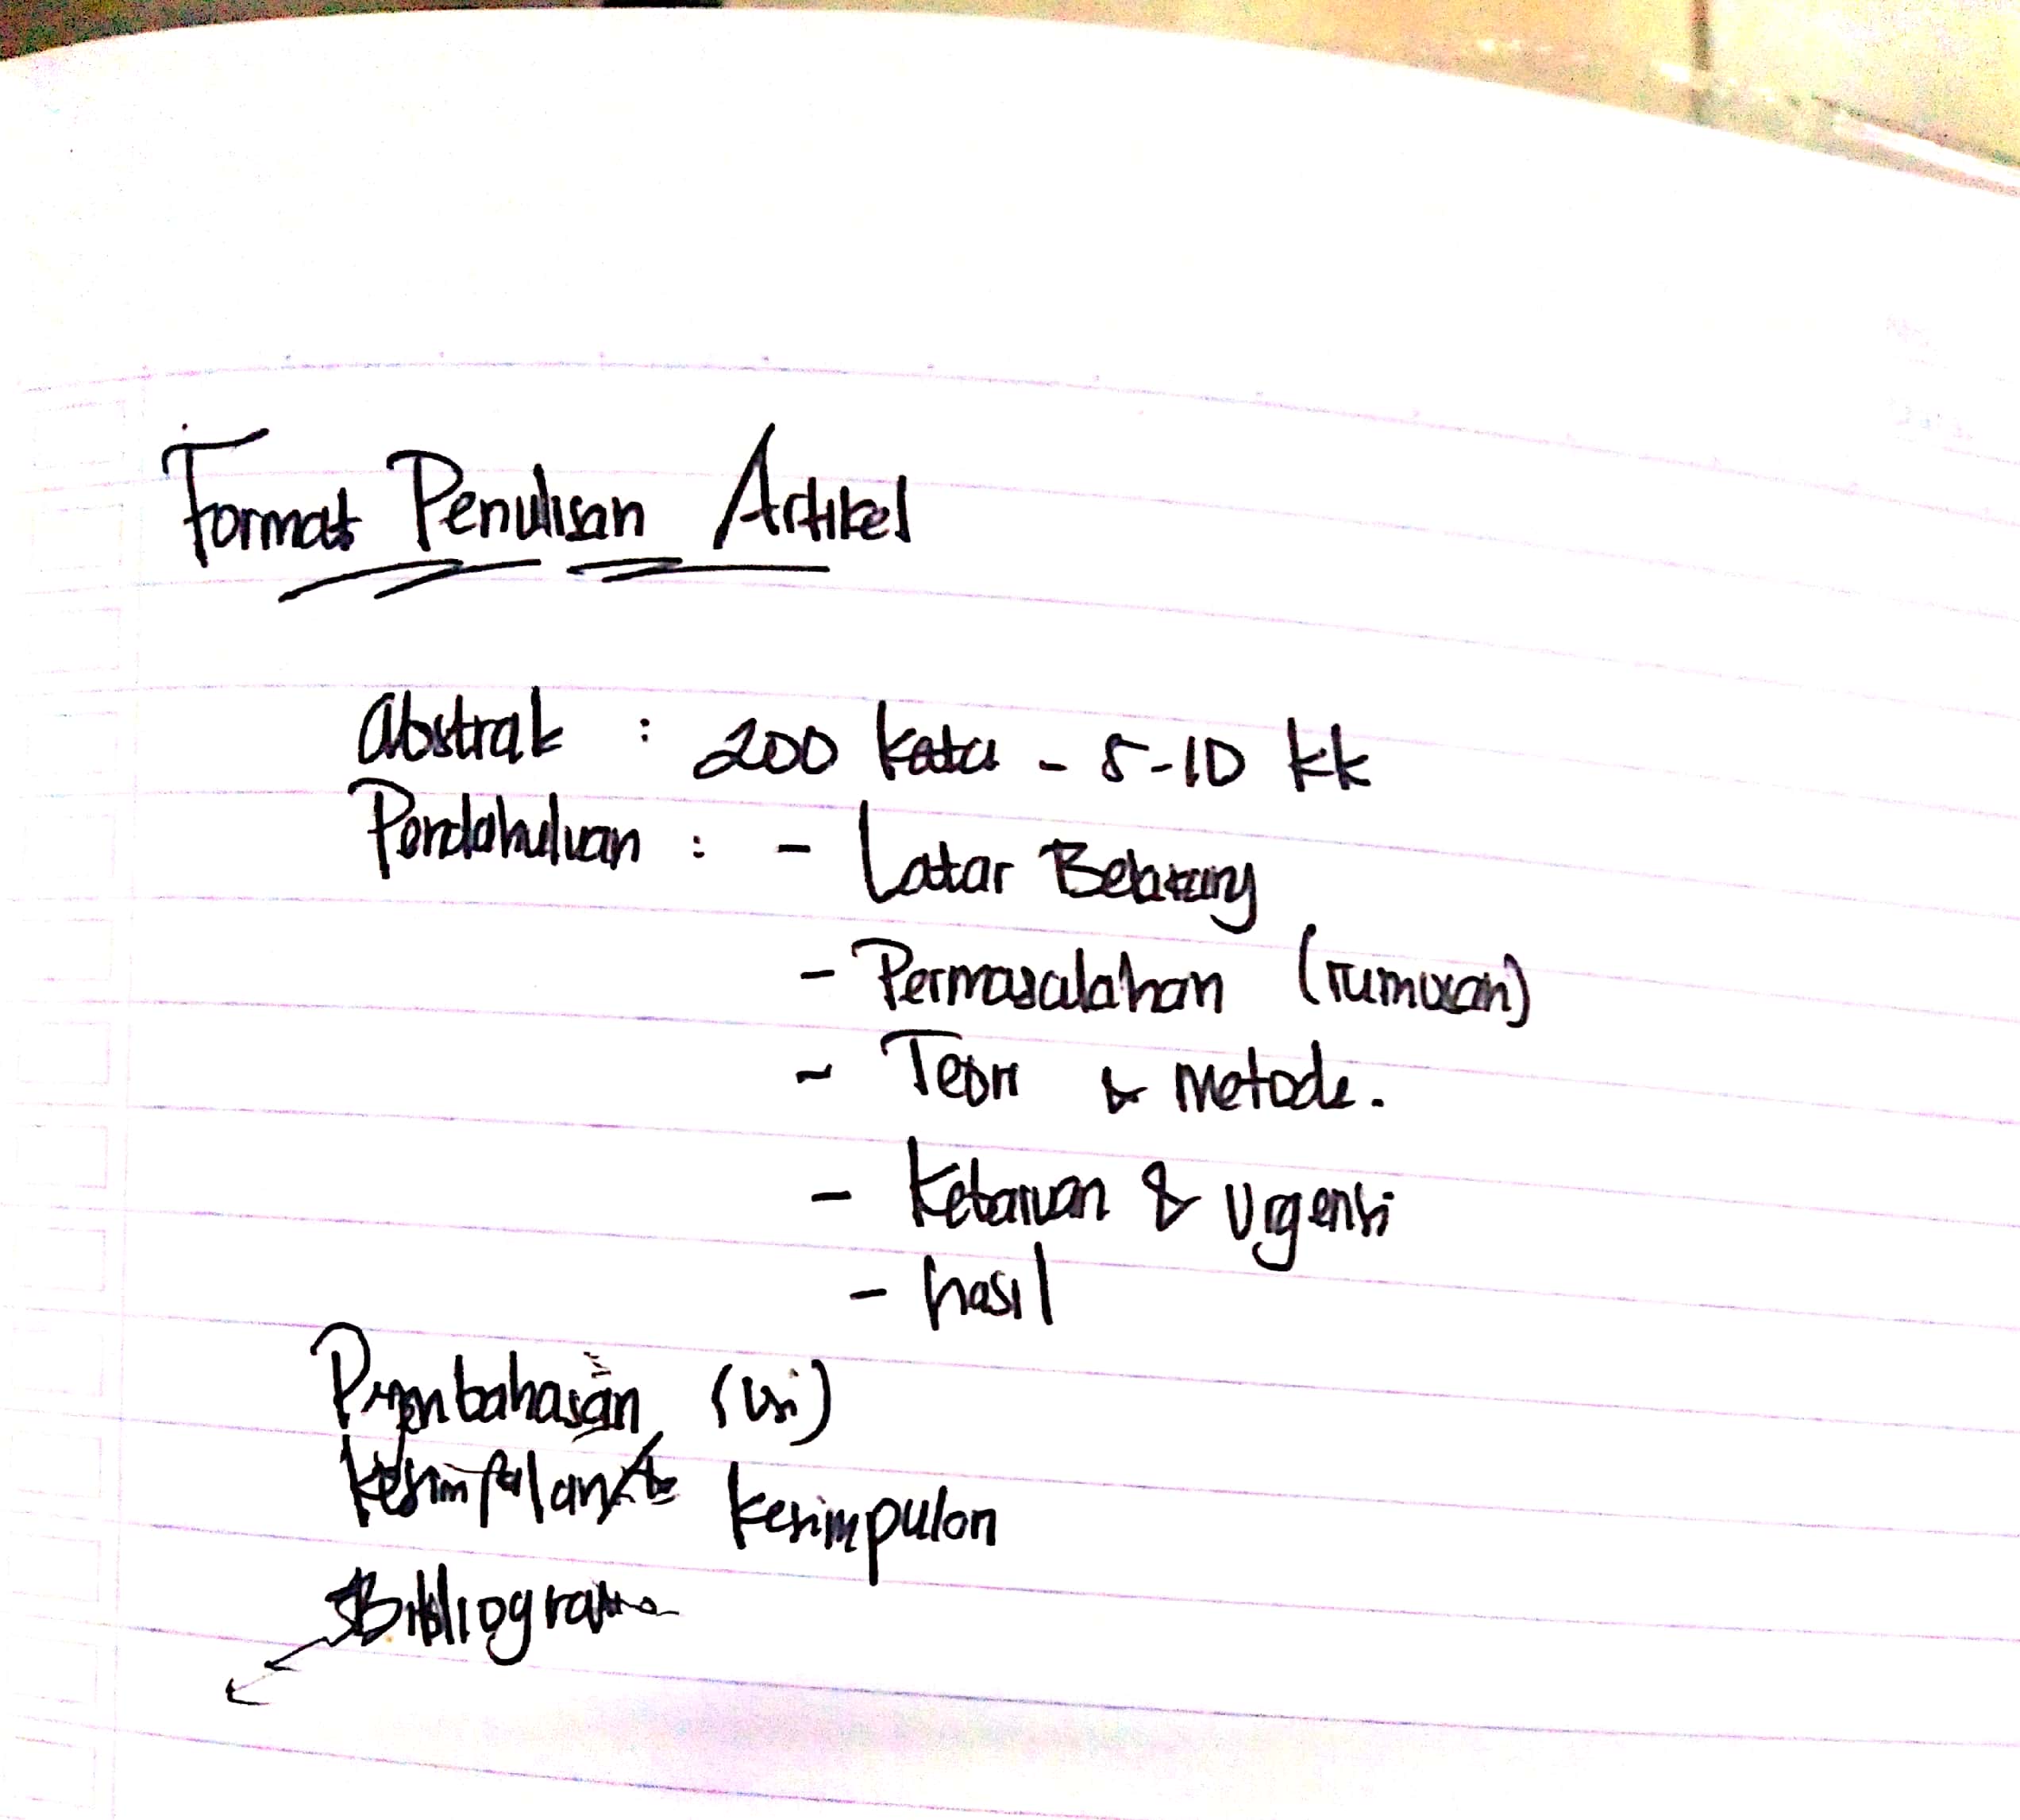 Format Penulisan Artikel
Abstrak : 200 kata - 5-10 kk
Pendahuluan : - Latar Belakang
- Permasalahan (rumusan)
- Teori & Metode.
- Kebaruan & Urgensi
- hasil
Pembahasan (isi)
kesimpulan kesimpulan
Bibliografi